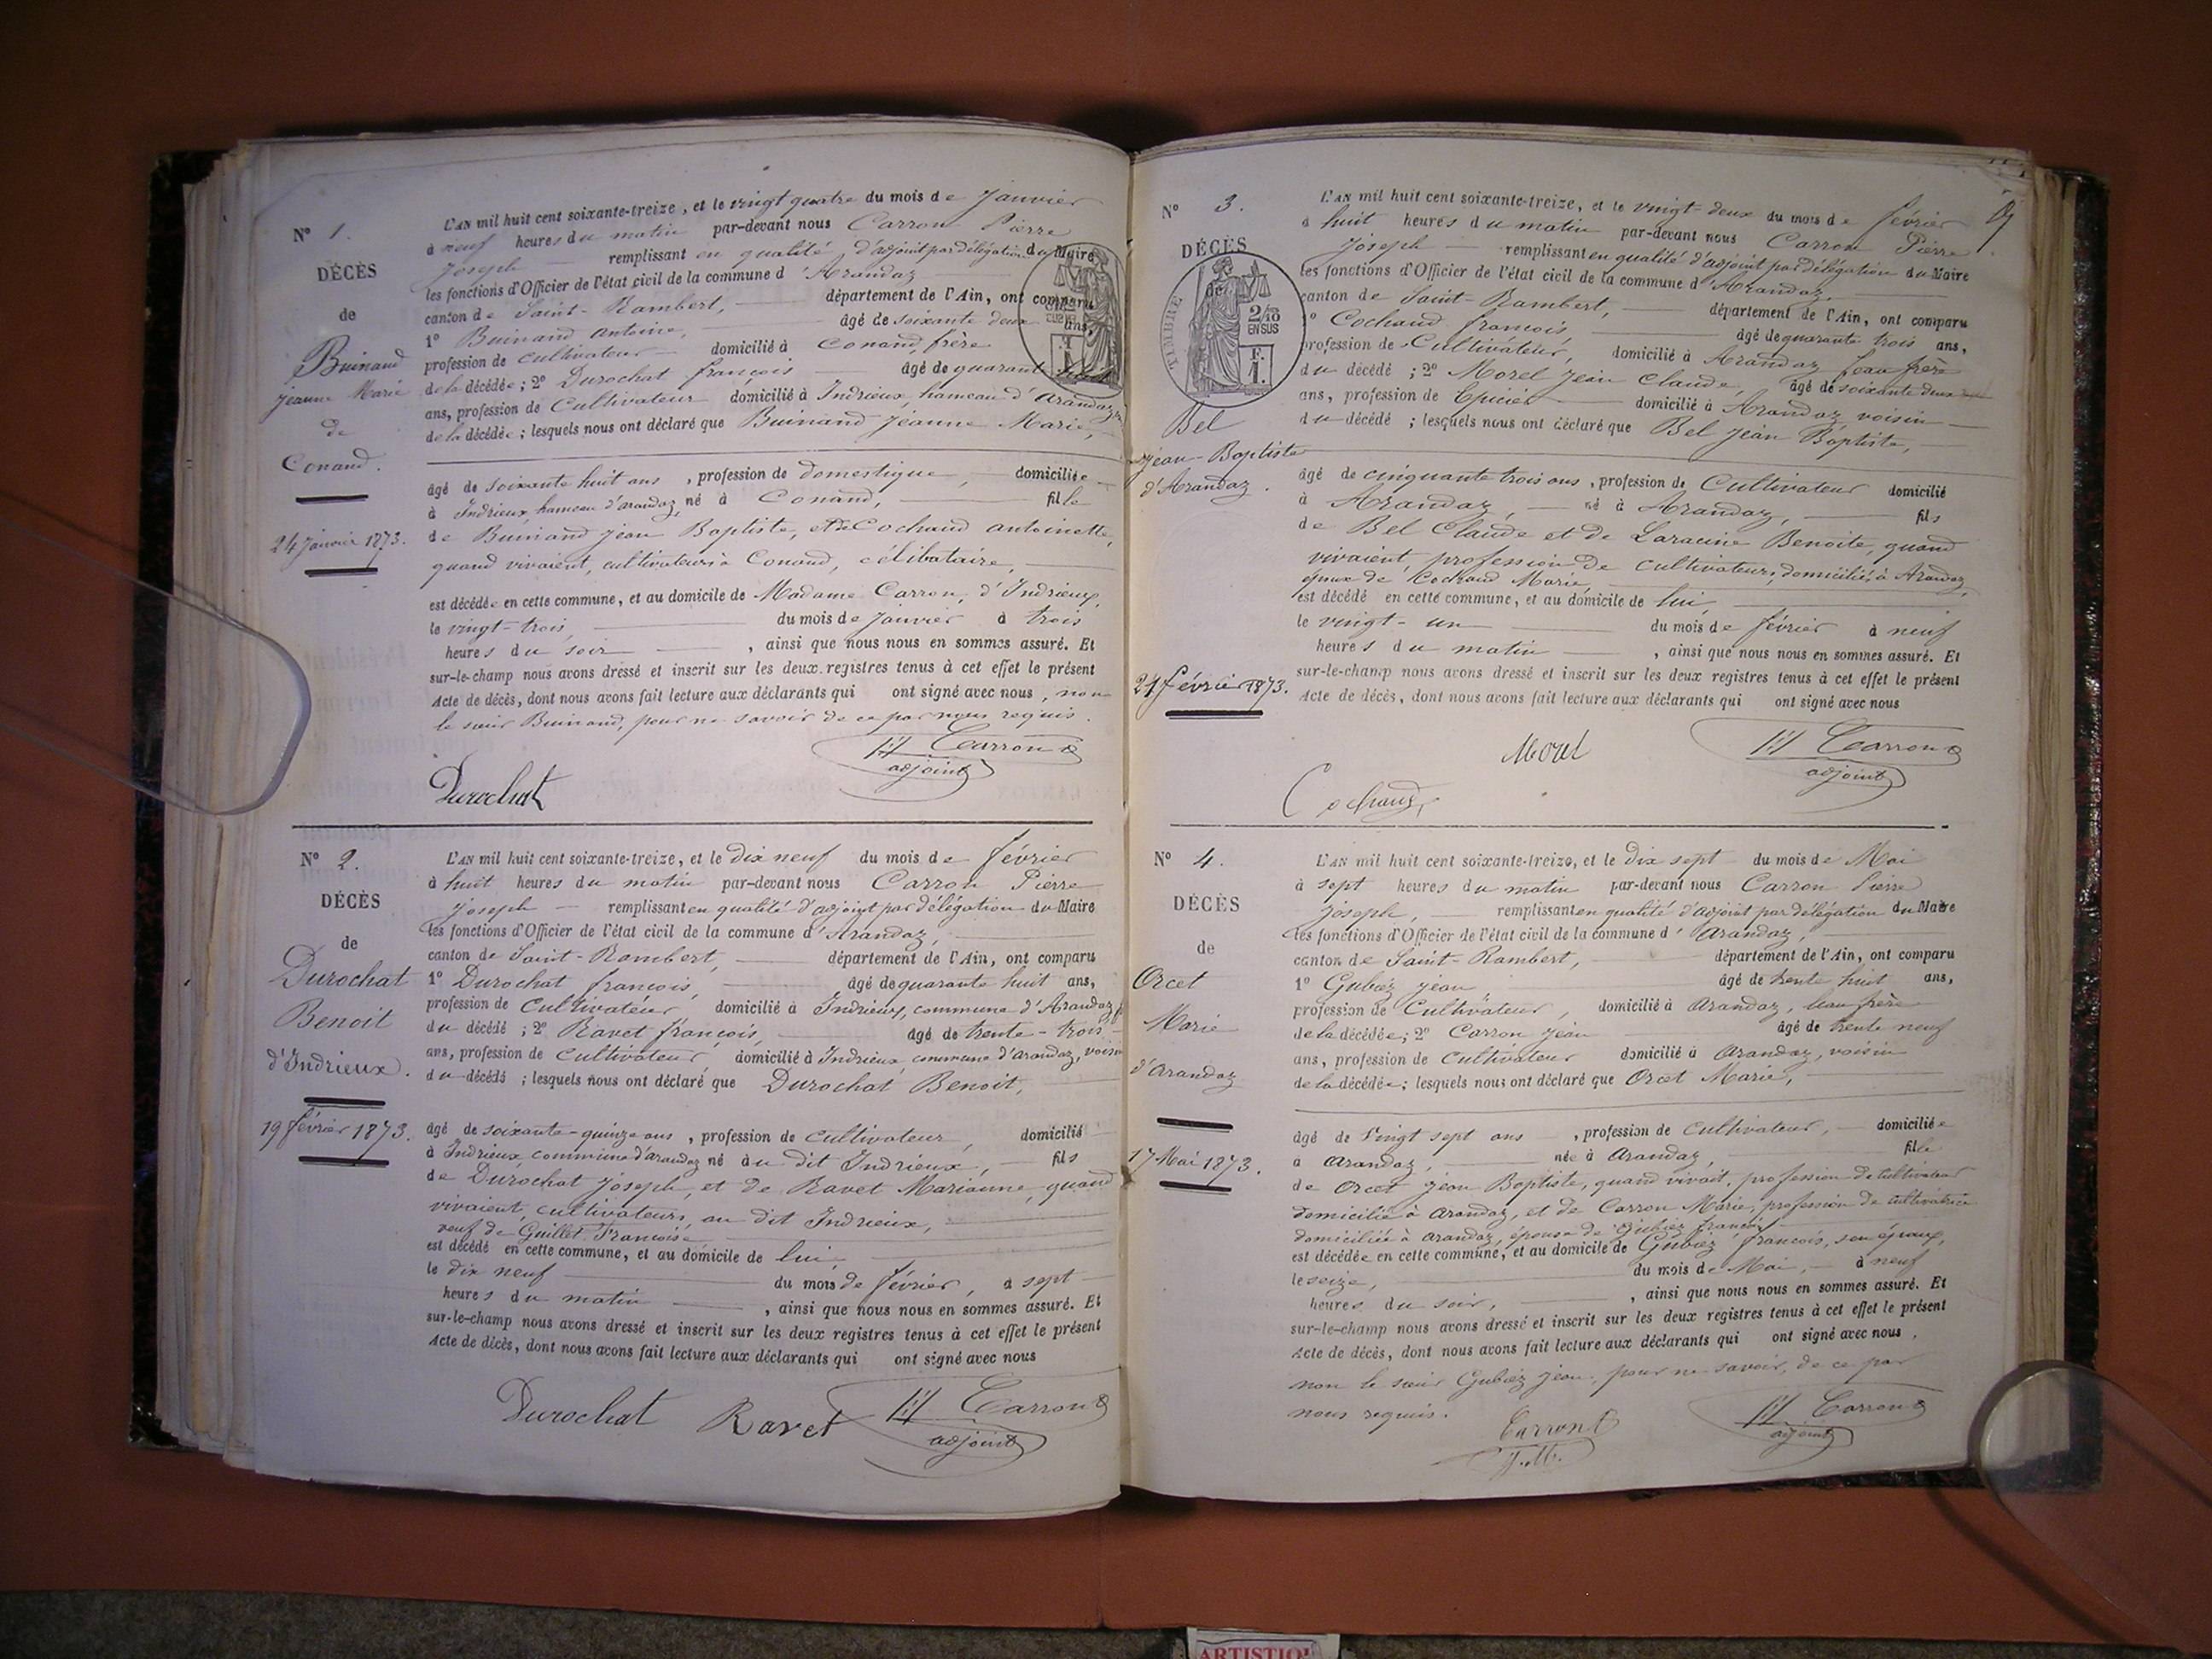 N° 1.
DÉCÈS
de
Buinand
Jeanne Marie
de
Conand.
24 Janvier 1873.
L'AN mil huit cent soixante-treize, et le vingt quatre du mois de Janvier
à neuf heures du matin par-devant nous Carron Pierre
Joseph remplissant en qualité d'adjoint par délégation du Maire
les fonctions d'Officier de l'état civil de la commune d'Arandaz
canton de Saint-Rambert, département de l'Ain, ont comparu
1° Buinand Antoine, âgé de soixante deux ans,
profession de cultivateur domicilié à Conand, frère
de la décédée ; 2° Durochat françois âgé de quarante
ans, profession de Cultivateur domicilié à Indrieux, hameau d'Arandaz
de la décédée ; lesquels nous ont déclaré que Buinand Jeanne Marie,
âgé de soixante huit ans, profession de domestique, domiciliée
à Indrieux, hameau d'arandaz, né à Conand, fille
de Buinand Jean Baptiste, et de Cochand antoinette,
quand vivaient, cultivateurs à Conand, célibataire,
est décédée en cette commune, et au domicile de Madame Carron, d'Indrieux,
le vingt-trois, du mois de Janvier à trois
heures du soir, ainsi que nous nous en sommes assuré. Et
sur-le-champ nous avons dressé et inscrit sur les deux registres tenus à cet effet le présent
Acte de décès, dont nous avons fait lecture aux déclarants qui ont signé avec nous, non
le sieur Buinand, pour ne savoir de ce par nous requis.
Carron
adjoint
Durochat
N° 2.
DÉCÈS
de
Durochat
Benoit
d'Indrieux.
19 février 1873.
L'AN mil huit cent soixante-treize, et le Dix neuf du mois de février
à huit heures du matin par-devant nous Carron Pierre
Joseph remplissant en qualité d'adjoint par délégation du Maire
les fonctions d'Officier de l'état civil de la commune d'Arandaz,
canton de Saint-Rambert, département de l'Ain, ont comparu
1° Durochat françois, âgé de quarante huit ans,
profession de Cultivateur domicilié à Indrieux, commune d'Arandaz
du décédé ; 2° Ravet françois, âgé de trente-trois
ans, profession de Cultivateur domicilié à Indrieux, commune d'arandaz, voisin
du décédé ; lesquels nous ont déclaré que Durochat Benoit,
âgé de soixante-quinze ans, profession de cultivateur, domicilié
à Indrieux commune d'arandaz né au dit Indrieux, fils
de Durochat Joseph, et de Ravet Marianne, quand
vivaient, cultivateurs, au dit Indrieux,
veuf de Guillet Françoise
est décédé en cette commune, et au domicile de lui,
le dix neuf du mois de février, à sept
heures du matin, ainsi que nous nous en sommes assuré. Et
sur-le-champ nous avons dressé et inscrit sur les deux registres tenus à cet effet le présent
Acte de décès, dont nous avons fait lecture aux déclarants qui ont signé avec nous
Durochat Ravet Carron
adjoint
N° 3.
DÉCÈS
de
TIMBRE
2/10
EN SUS
F.
1.
Bel
Jean-Baptiste
d'Arandaz.
21 février 1873.
L'AN mil huit cent soixante-treize, et le vingt-deux du mois de février
à huit heures du matin par-devant nous Carron Pierre
Joseph remplissant en qualité d'adjoint par délégation du Maire
les fonctions d'Officier de l'état civil de la commune d'Arandaz,
canton de Saint-Rambert, département de l'Ain, ont comparu
1° Cochand françois, âgé de quarante trois ans,
profession de Cultivateur, domicilié à Arandaz, beau frère
du décédé ; 2° Morel Jean Claude, âgé de soixante deux
ans, profession de Epicier domicilié à Arandaz, voisin
du décédé ; lesquels nous ont déclaré que Bel Jean Baptiste,
âgé de cinquante trois ans, profession de Cultivateur domicilié
à Arandaz, né à Arandaz, fils
de Bel Claude et de Laracine Benoite, quand
vivaient, profession de cultivateurs, domiciliés à Arandaz,
époux de Cochand Marie,
est décédé en cette commune, et au domicile de lui,
le vingt-un du mois de février à neuf
heures du matin, ainsi que nous nous en sommes assuré. Et
sur-le-champ nous avons dressé et inscrit sur les deux registres tenus à cet effet le présent
Acte de décès, dont nous avons fait lecture aux déclarants qui ont signé avec nous
Morel Carron
adjoint
Cochand
N° 4.
DÉCÈS
de
Orcet
Marie
d'Arandaz
17 Mai 1873.
L'AN mil huit cent soixante-treize, et le Dix sept du mois de Mai
à sept heures du matin par-devant nous Carron Pierre
Joseph, remplissant en qualité d'adjoint par délégation du Maire
les fonctions d'Officier de l'état civil de la commune d'Arandaz,
canton de Saint-Rambert, département de l'Ain, ont comparu
1° Gubiez Jean âgé de trente huit ans,
profession de Cultivateur, domicilié à Arandaz, beau frère
de la décédée ; 2° Carron Jean âgé de trente neuf
ans, profession de Cultivateur domicilié à Arandaz, voisin
de la décédée ; lesquels nous ont déclaré que Orcet Marie,
âgé de Vingt sept ans, profession de Cultivateur, domiciliée
à Arandaz, née à Arandaz, fille
de Orcet Jean Baptiste, quand vivait, profession de Cultivateur
domicilié à Arandaz, et de Carron Marie, profession de cultivatrice
domiciliée à Arandaz, épouse de Gubiez françois
est décédée en cette commune, et au domicile de Gubiez françois, son époux,
le seize, du mois de Mai, à neuf
heures du soir, ainsi que nous nous en sommes assuré. Et
sur-le-champ nous avons dressé et inscrit sur les deux registres tenus à cet effet le présent
Acte de décès, dont nous avons fait lecture aux déclarants qui ont signé avec nous,
non le sieur Gubiez Jean, pour ne savoir, de ce par
nous requis.
Carron Carron
J. M. adjoint
ARTISTIQ